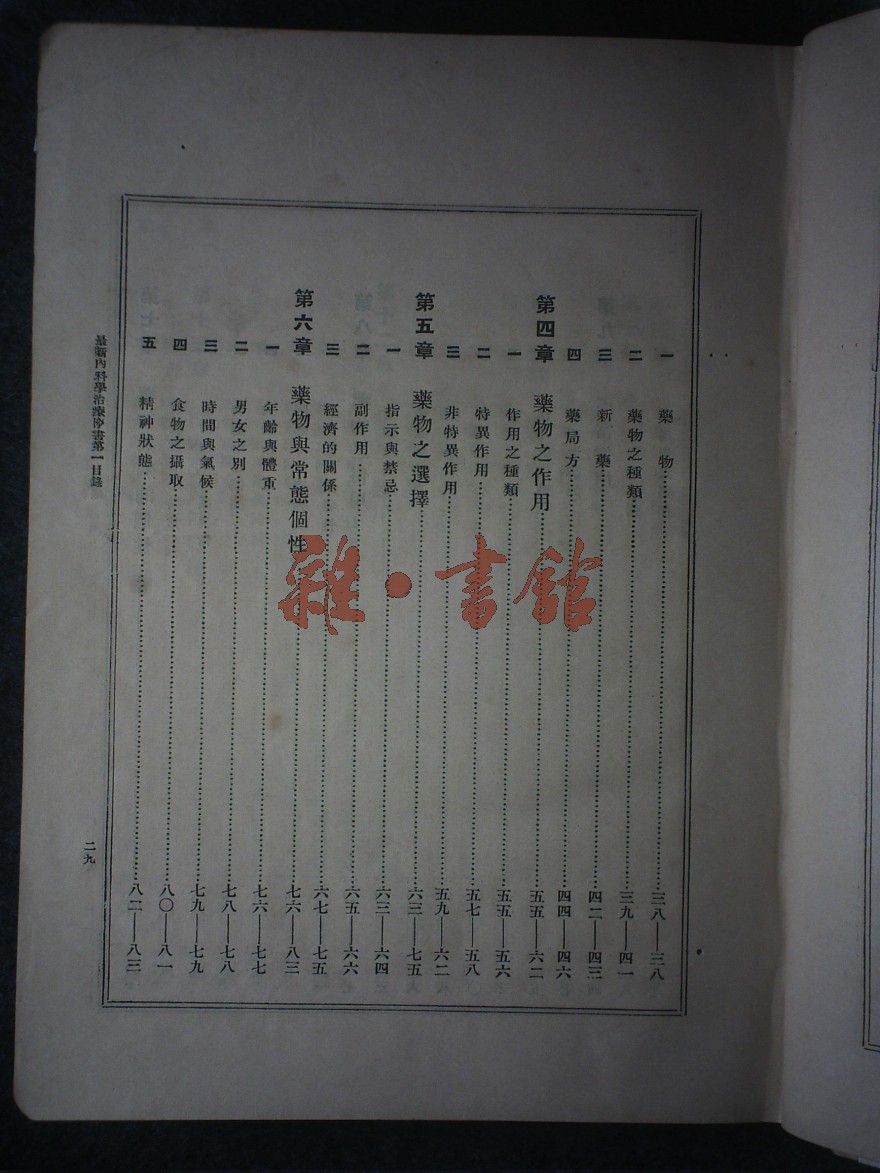 一 藥物……三八—三八
二 藥物之種類……三九—四一
三 新藥……四二—四三
四 藥局方……四四—四六
第四章 藥物之作用……五五—六二
一 作用之種類……五五—五六
二 特異作用……五七—五八
三 非特異作用……五九—六二
第五章 藥物之選擇……六三—七五
一 指示與禁忌……六三—六四
二 副作用……六五—六六
三 經濟的關係……六七—七五
第六章 藥物與常態個性……七六—八三
一 年齡與體重……七六—七七
二 男女之別……七八—七八
三 時間與氣候……七九—七九
四 食物之攝取……八〇—八一
五 精神狀態……八二—八三
最新內科學治療全書第一目錄
二九
雜·書館